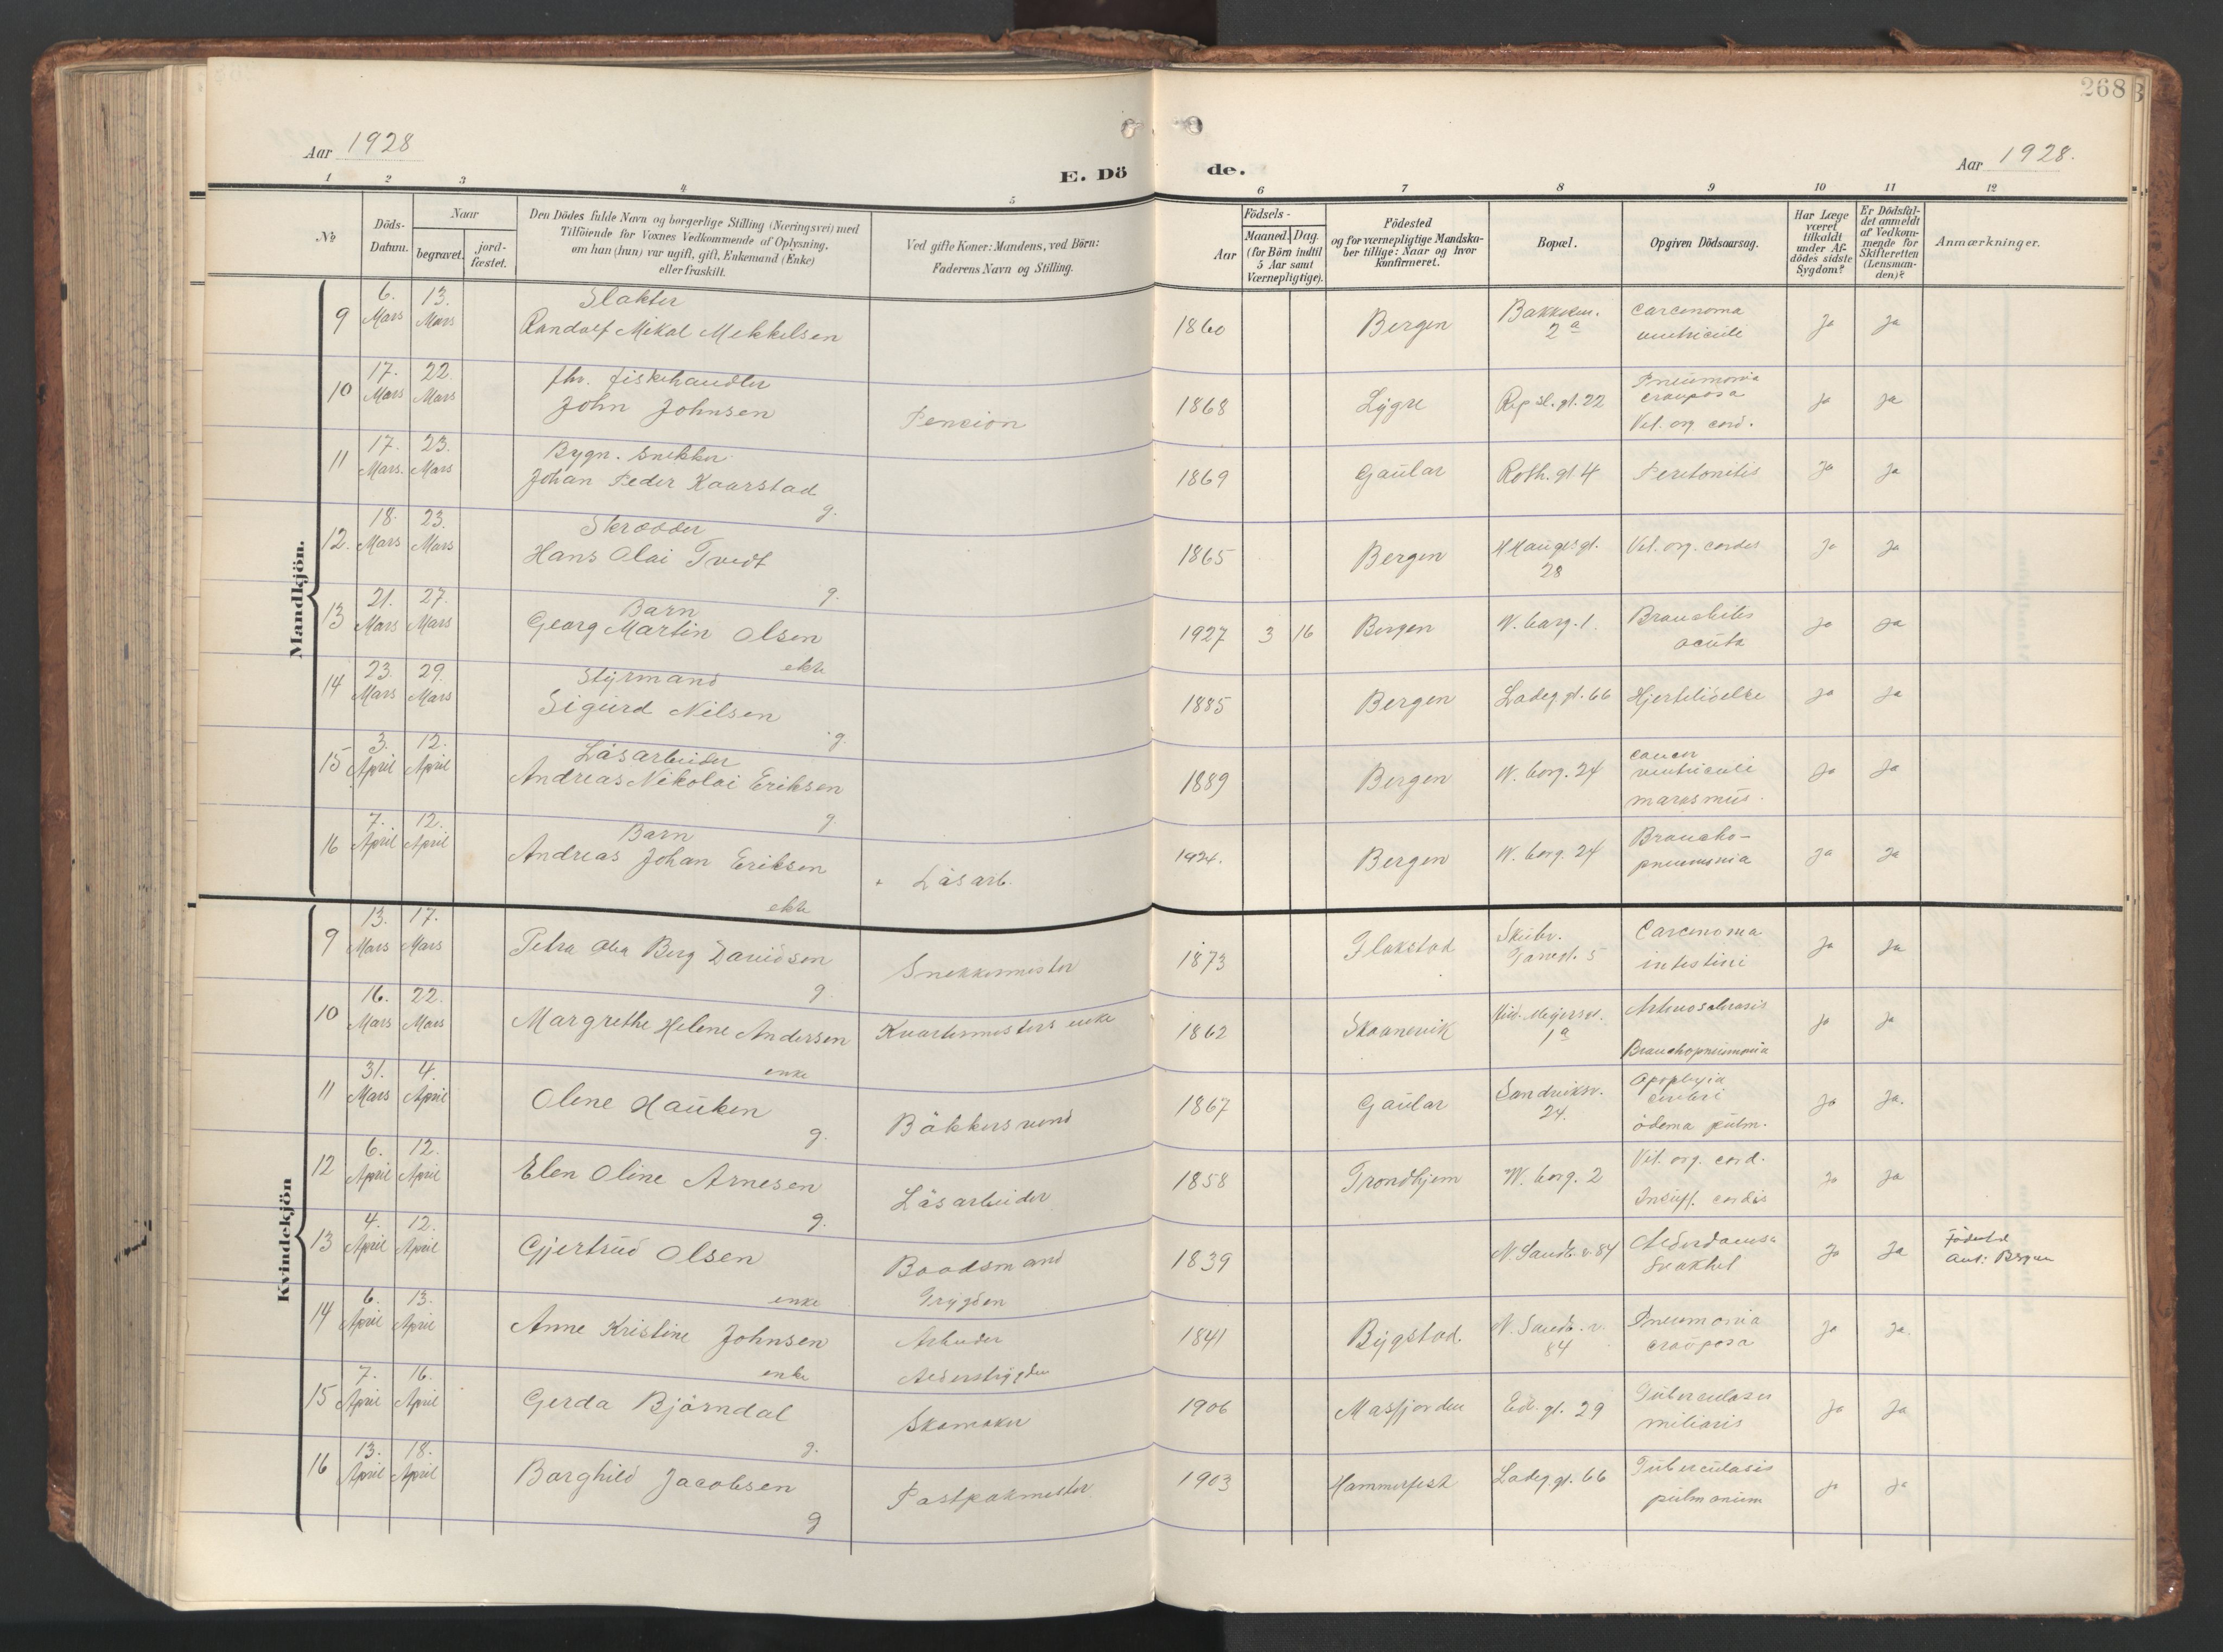 268
Aar 1928
Aar 1928.
E. Dö
de.
1 2 3 4 5 6 7 8 9 10 11 12
No
Döds-
Datum.
Naar
begravet.
jord-
fæstet.
Den Dödes fulde Navn og borgerlige Stilling (Næringsvei) med
Tilföiende for Voxnes Vedkommende af Oplysning,
om han (hun) var ugift, gift, Enkemand (Enke)
eller fraskilt.
Ved gifte Koner: Mandens, ved Börn:
Faderens Navn og Stilling.
Födsels-
Aar
Maaned. Dag.
(for Börn indtil
5 Aar samt
Værnepligtige).
Födested
og for værnepligtige Mandska-
ber tillige: Naar og hvor
konfirmeret.
Bopæl.
Opgiven Dödsaarsag.
Har Læge
været
tilkaldt
under Af-
dödes sidste
Sygdom?
Er Dödsfal-
det anmeldt
af Vedkom-
mende for
Skifteretten
(Lensman-
den)?
Anmærkninger.
Mandkjön.
9 6. Mars 13. Mars Slakter
Randolf Mikal Mekkelsen 1860 Bergen 2a Carcenoma
ventriculi Ja Ja
10 17. Mars 22. Mars fhv. fiskehandler
John Johnsen Pencion 1868 Lygre Rep sl. gt. 22 Pneumonia
crouposa
Vit. org cord. Ja Ja
11 17. Mars. 23. Mars Bygn. Snekker
Johan Peder Kaarstad
g. 1869 Gaular Roth. gt 4 Peretonitis Ja Ja
12. 18. Mars 23. Mars Skrædder
Hans Olai Tvedt
g. 1865 Bergen H Hauges gt.
28 Vit. org. cordis Ja Ja
13 21. Mars 27. Mars Barn
Georg Martin Olsen
ekte 1927 3 16 Bergen N. borg. 1. Bronchitis
acuta Ja Ja
14 23. Mars 29. Mars Styrmand
Sigurd Nilsen
g. 1885 Bergen Ladeg. gt. 66 Hjertelidelse Ja Ja
15 3. April 12. April Låsarbeider
Andreas Nikolai Eriksen
g. 1889 Bergen W. borg. 24 cancer
ventriculi
marasmus. Ja Ja
16 7. April 12. April Barn
Andreas Johan Eriksen
ekte Låsarb. 1924. Bergen W. borg. 24 Broncho-
pneumonia Ja Ja
Kvindekjön
9 13. Mars 17. Mars Petra Olea Berg Davidsen
g. Snekkermester 1873 Flakstad Skutv.
5 Carcenoma
intestini Ja Ja
10 16. Mars 22. Mars Margrethe Helene Andersen
enke Kvartermesters enke 1862 Skaanevik
1a Arteriosclerosis
Bronchopneumonia Ja Ja
11 31. Mars 4. April Olene Hauken
g. Båkkersvend 1867 Gaular Sandviksv.
24. Apoplexia
cerebri
ödema pulm. Ja Ja.
12 6. April 12. April Elen Oline Arnesen
g. Låsarbeider 1858 Trondhjem W. borg. 2 Vit. org. cord.
Insuff. cordis Ja Ja
13 4. April 12. April Gjertrud Olsen
enke Baadsmand
Trygden 1839 N. Sandv. v. 84 Alderdoms
Svakhet Ja Ja Födested
ant: Bergen
14 6. April 13. April Anne Kristine Johnsen
enke Arbeider
Alderstrygden 1841 Bygstad. N. Sandv. v.
84 Pneumonia
crouposa Ja Ja.
15 7. April 16. April Gerda Björndal
g. Skomaker 1906 Masfjorden Ed. gt. 29 Tuberculoses
miliaris Ja Ja
16 13. April 18. April Borghild Jacobsen
g Postpakmester. 1903 Hammerfest Ladeg. gt. 66 Tuberculosis
pulmonium Ja Ja